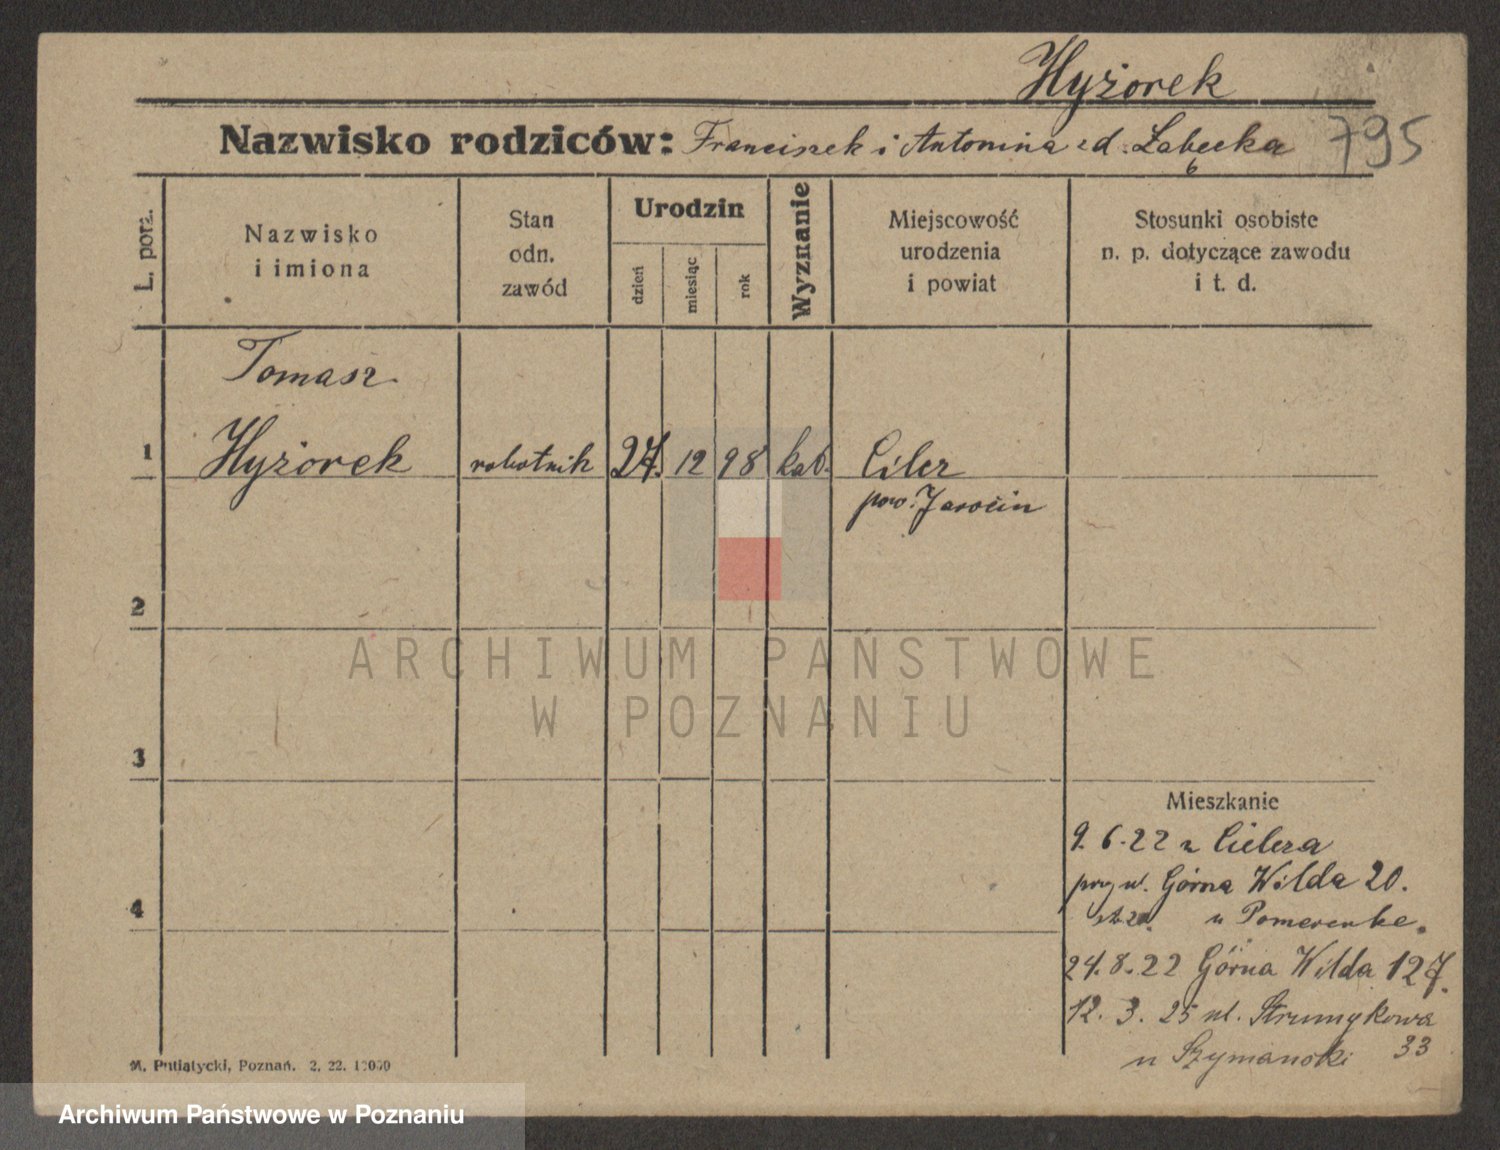 Hyżorek
Nazwisko rodziców: Franciszek i Antonina z d. Łabęcka 795
b
L. porz.
Nazwisko
i imiona
Stan
odn.
zawód
Urodzin
dzień
miesiąc
rok
Wyznanie
Miejscowość
urodzenia
i powiat
Stosunki osobiste
n. p. dotyczące zawodu
i t. d.
Tomasz
1 Hyżorek robotnik 27. 12 98 kat. Cilcz
pow. Jarocin
2
ARCHIWUM PAŃSTWOWE
W POZNANIU
3
Mieszkanie
9. 6. 22 z Cielcza
przy ul. Górna Wilda 20.
u Pomerenke.
4
24. 8. 22 Górna Wilda 127.
12. 3. 25 ul. Strumykowa
u Szymanski 33
M. Putiatycki, Poznań. 2. 22. 10000
Archiwum Państwowe w Poznaniu